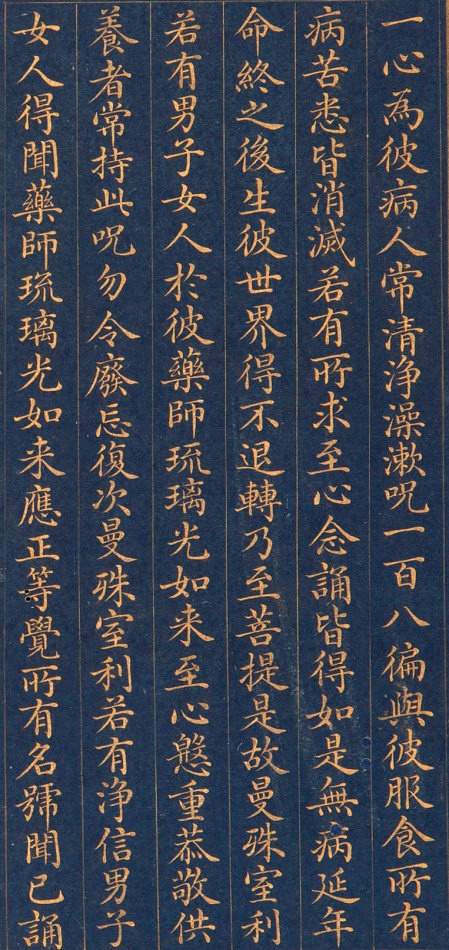 一心為彼病人常清淨澡漱呪一百八徧與彼服食所有
病苦悉皆消滅若有所求至心念誦皆得如是無病延年
命終之後生彼世界得不退轉乃至菩提是故曼殊室利
若有男子女人於彼藥師琉璃光如来至心慇重恭敬供
養者常持此呪勿令廢忘復次曼殊室利若有淨信男子
女人得聞藥師琉璃光如来應正等覺所有名號聞已誦